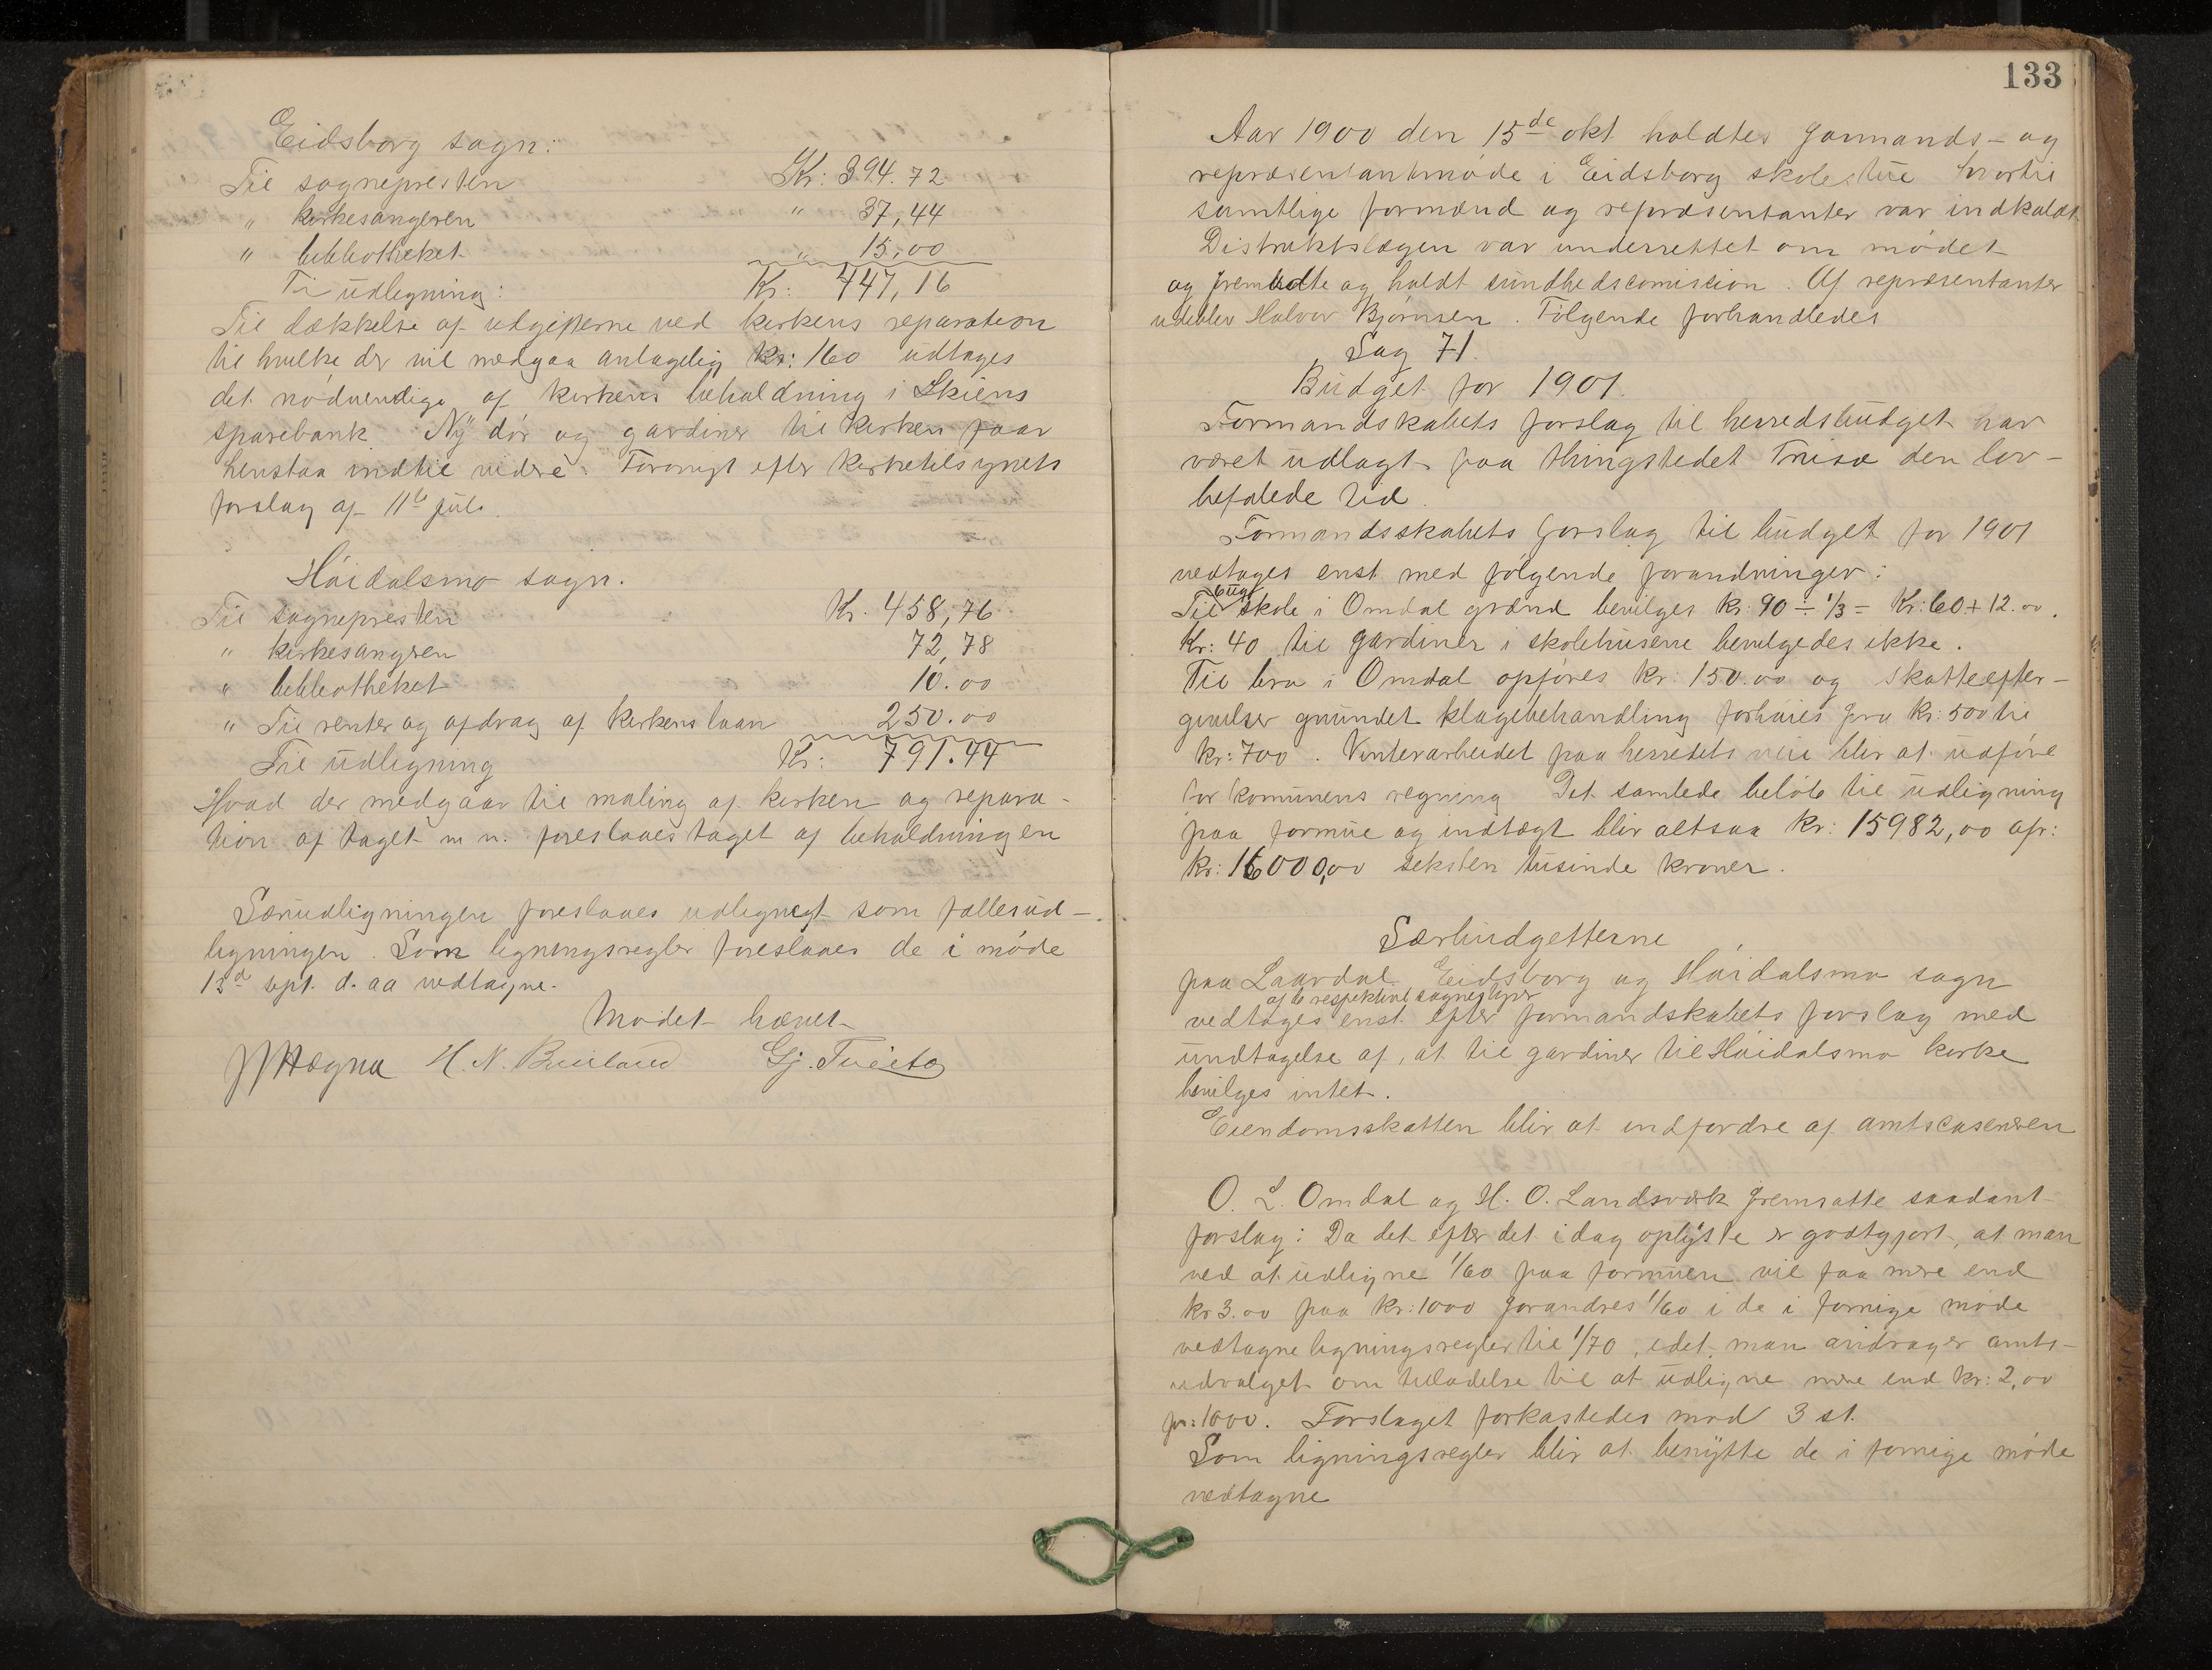 Eidsborg sogn:
Til sognepresten Kr: 394.72
„ kirkesangeren „ 37,44
„ bibliotheket „ 15,00
Ti udligning: Kr: 447,16
Til dækkelse af udgifterne ved kirkens reparation
til hvilke der vil medgaa antagelig kr: 160 udtages
det nødvendige af kirkens beholdning i Skiens
sparebank Ny dør og gardiner til kirken faar
henstaa indtil videre. Forøvrigt efter kirketilsynets
forslag af 11te juli.
Høidalsmo sogn.
Til sognepresten Kr. 458,76
„ kirkesangeren 72,78
„ bibliotheket 10.00
„ Til renter og afdrag af kirkens laan 250.00
Til udligning Kr: 791.44
Hvad der medgaar til maling af kirken og repara-
tion af taget m m. foreslaaes taget af beholdningen
Særudligningen foreslaaes udlignegt som fællesud-
ligningen. Som ligningsregler foreslaaes de i møde
13d sept. d. aa vedtagne.
Mødet hævet
H. N. Builand Gj. Tveito
133
Aar 1900 den 15de okt holdtes formands- og
repræsentantmøde i Eidsborg skolestue hvortil
samtlige formænd og repræsentanter var indkaldt
Distriktslægen var underrettet om mødet
og fremmødte og holdt sundhedscomission. Af repræsentanter
udeblev Halvor Bjørnsen. Følgende forhandledes
Sag 71.
Budget for 1901.
Formandskabets forslag til herredsbudget har
været udlagt paa thingstedet Trisæ den lov-
befalede tid.
Formandsskabets forslag til budget for 1901
vedtages enst med følgende forandringer:
bug
Til skole i Omdal grænd bevilges kr: 90 ÷ 1/3 = Kr: 60 + 12.00.
Kr: 40 til gardiner i skolehuserne bevilgedes ikke.
Til bro i Omdal opføres kr: 150.00 og skatteefter-
givelser grundet klagebehandling forhøies fra kr: 500 til
kr: 700. Vinterarbeidet paa herredets veie blir at udføre
for kommunens regning Det samlede beløb til udligning
paa formue og indtægt blir altsaa kr: 15982,00 afr:
kr: 16000,00 seksten tusinde kroner.
Særbudgetterne
paa Laardal Eidsborg og Høidalsmo sogn
af de respektive sognestyrer
vedtages enst efter formandskabets forslag med
undtagelse af, at til gardiner til Høidalsmo kirke
bevilges intet.
Eiendomsskatten blir at indfordre af amtscaserern
O. L. Omdal og H. O. Landsværk fremsatte saadant
forslag: Da det efter det idag oplyste er godtgjort, at man
ved at udligne 1/60 paa formuen vil faa mere end
kr 3.00 paa kr: 1000 forandres 1/60 i de i forrige møde
vedtagne ligningsregler til 1/70, idet man andrager amts-
udvalget om tilladelse til at udligne mere end kr: 2,00
pr: 1000. Forslaget forkastedes mod 3 st.
Som ligningsregler blir at benytte de i forrige møde
vedtagne